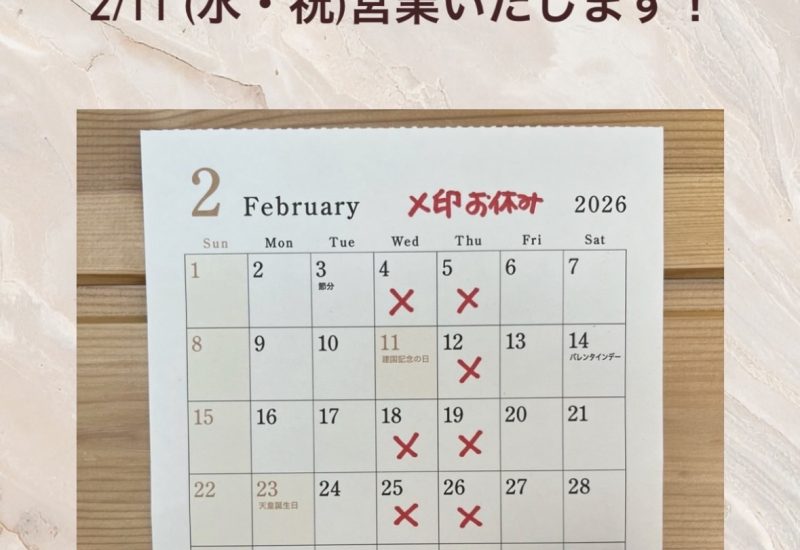 2/11(水・祝)営業いたします！
2 February ×印お休み 2026
Sun Mon Tue Wed Thu Fri Sat
1 2 3 4 5 6 7
節分
× ×
8 9 10 11 12 13 14
建国記念の日 バレンタインデー
×
15 16 17 18 19 20 21
× ×
22 23 24 25 26 27 28
天皇誕生日
× ×